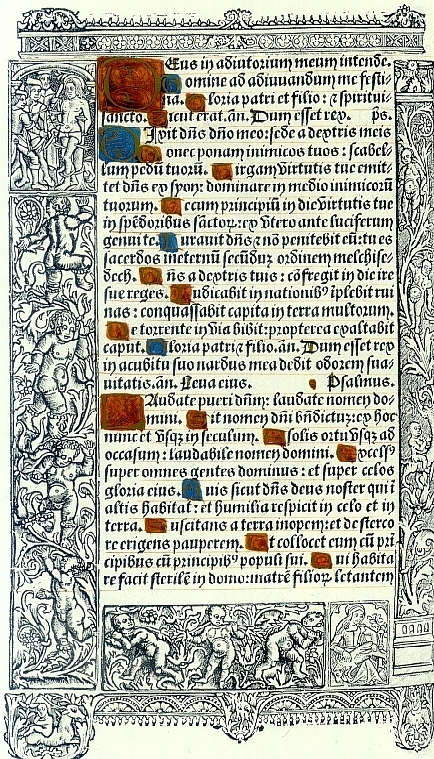 Deus in adiutorium meum intende.
Domine ad adiuvandum me festi-
na. Gloria patri et filio: ⁊ spiritui
sancto. Sicut erat. añ. Dum esset rex. ps.
Dixit dñs dño meo: sede a dextris meis
Donec ponam inimicos tuos: scabel-
lum pedū tuorū. Virgam virtutis tue emit-
tet dñs ex syon: dominare in medio inimicorū
tuorum. Tecum principiū in die virtutis tue
in splēdoribus sāctoꝝ: ex vtero ante luciferum
genui te. Jurauit dñs ⁊ nō penitebit eū: tu es
sacerdos in eternū secūduꝫ ordinem melchise-
dech. Dñs a dextris tuis: cōfregit in die ire
sue reges. Judicabit in nationibꝰ īplebit rui
nas: conquassabit capita in terra multorum.
De torrente in via bibit: propterea exaltabit
caput. Gloria patri ⁊ filio. añ. Dum esset rex
in acubitu suo nardus mea dedit odorem sua-
uitatis. añ. Leua eius. Psalmus.
Laudate pueri dñm: laudate nomen do-
mini. Sit nomen dñi bñdictuꝫ: ex hoc
nunc et vsqꝫ in seculum. A solis ortu vsqꝫ ad
occasum: laudabile nomen domini. Excelsꝰ
super omnes gentes dominus: et super celos
gloria eius. Quis sicut dñs deus noster qui ī
altis habitat: et humilia respicit in celo et in
terra. Suscitans a terra inopem: et de sterco
re erigens pauperem. Ut collocet eum cū pri
cipibus cū principibꝰ populi sui. Qui habita
re facit sterilē in domo: matrē filioꝝ letantem